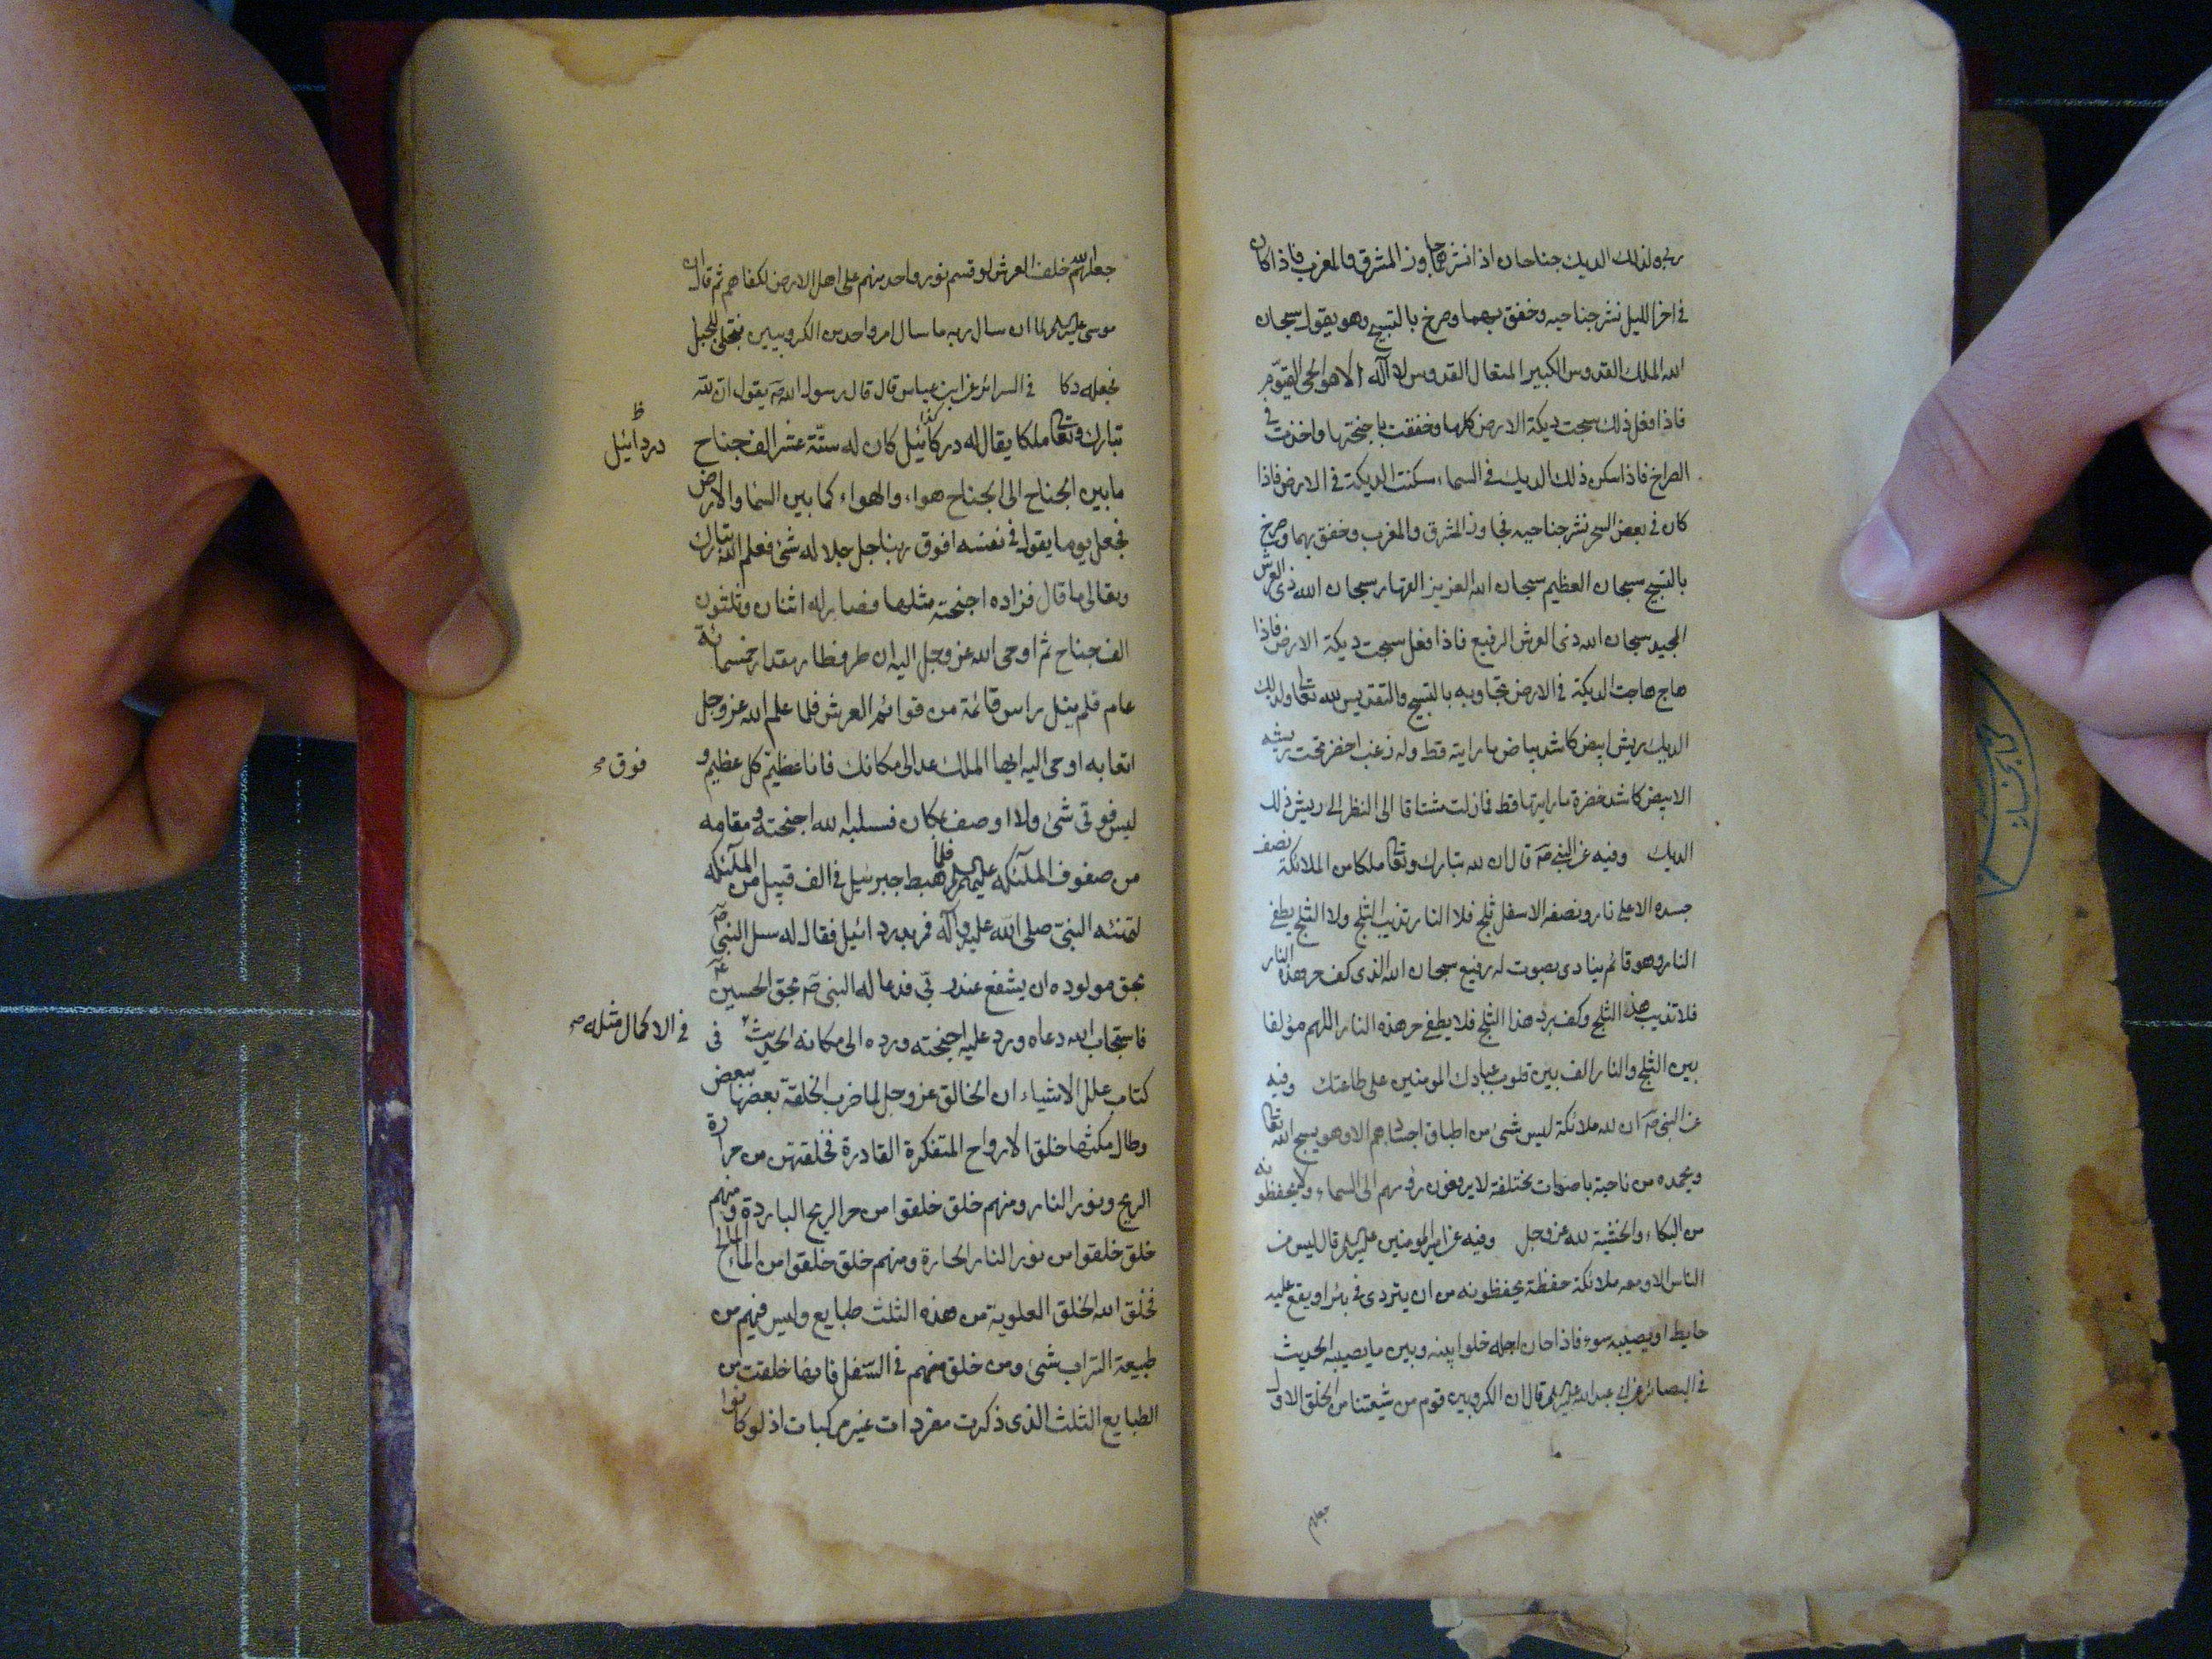 ربي ولذلك الديك جناحان اذا نشرهما جاوز المشرق والمغرب فاذا كان
في اخر الليل نشر جناحيه وخفق بهما وصرخ بالتسبيح وهو يقول سبحان
الله الملك القدوس الكبير المتعال القدوس لا آله الا هو الحي القيّوم
فاذا فعل ذلك سبحت ديكة الارض كلها وخفقت باجنحتها واخذت في
الصراخ فاذا سكن ذلك الديك في السماء سكنت الديكة في الارض فاذا
كان في بعض السحر نشر جناحيه فجاوز المشرق والمغرب وخفق بهما وصرخ
بالتسبيح سبحان العظيم سبحان الله العزيز القهار سبحان الله ذي العرش
المجيد سبحان الله ذي العرش الرفيع فاذا فعل سبحت ديكة الارض فاذا
هاج هاجت الديكة في الارض تجاوبه بالتسبيح والتقديس لله تعالى ولذلك
الديك ريش ابيض كاشد بياض ما رايته قط وله زغب اخضر تحت ريشه
الابيض كاشد خضرة ما رايتها قط فما زلت مشتاقا الى النظر الى ريش ذلك
الديك وفيه عن النبي صه قال ان لله تبارك وتعالى ملكا من الملائكة نصف
جسده الاعلى نار ونصفه الاسفل ثلج فلا النار تذيب الثلج ولا الثلج يطفي
النار وهو قائم ينادى بصوت له رفيع سبحان الله الذى كف حر هذه النار
فلا تذيب هذا الثلج وكف برد هذا الثلج فلا يطفي حر هذه النار اللهم مؤلفا
بين الثلج والنار الف بين قلوب عبادك المومنين على طاعتك وفيه
عن النبي صه ان لله ملائكة ليس شئ من اطباق اجسادهم الا وهو يسبح الله تعالى
ويحمده من ناحية باصوات مختلفة لا يرفعون رؤسهم الى السماء ولا يخفظونه
من البكاء والخشية لله عز وجل وفيه عن امير المومنين عليه السلم قال ليس من
الناس الا ومعه ملائكة حفظة يحفظونه من ان يتردى في بئر او يقع عليه
حايط او يصيبه سوء فاذا حان اجله خلوا بينه وبين ما يصيبه الحديث
في البصائر عن ابي عبد الله عليه السلم قال ان الكروبين قوم من شيعتنا من الخلق الاول
جعلهم
جعلهم الله خلف العرش لو قسم نور واحد منهم على اهل الارض لكفاهم ثم قال ان
موسى عليه السلم لما ان سال ربه ما سال امر واحد من الكروبيين فتجلى للجبل
فجعله دكا في السرائر عن ابن عباس قال قال رسول الله صه يقول ان لله
تبارك وتعالى ملكا يقال له دركائيل كذا كان له ستّة عشر الف جناح
درد ائيل ظ
ما بين الجناح الى الجناح هواء والهواء كما بين السما والارض
فجعل يوما يقول في نفسه افوق ربنا جل جلاله شئ فعلم الله تبارك
وتعالى ما قال فزاده اجنحة مثلها فصار له اثنان وثلثون
الف جناح ثم اوحى الله عز وجل اليه ان طر فطار مقدار خمسمائة
عام فلم ينل راس قائمة من قوائم العرش فلما علم الله عز وجل
اتعابه اوحى اليه ايها الملك عد الى مكانك فانا عظيم كل عظيم و
فوق
ليس فوقى شئ ولا اوصف بمكان فسلبه الله اجنحته ومقامه
من صفوف الملآئكة عليهم السلم فلما هبط جبرئيل في الف قبيل من الملآئكة
لتهنئه النبيّ صلى الله عليه وآله فمر بدردائيل فقال له سل النبيّ صه
بحق مولوده ان يشفع عند ربّى فدعا له النبي صه بحق الحسين عه
فاستجاب الله دعاه ورد عليه اجنحته ورده الى مكانه الحديث في
في الاكمال مثله
كتاب علل الاشياء ان الخالق عز وجل لما ضرب الخلقة بعضها ببعض
وطال مكثها خلق الارواح المتفكرة القادرة فخلقتهن من حرارة
الريح ونور النار ومنهم خلق خلقوا من حر الريح الباردة ومنهم
خلق خلقوا من نور النار الحارة ومنهم خلق خلقوا من الماء المالح
فخلق الله الخلق العلوية من هذه الثلث طبايع وليس فيهم من
طبيعة التراب شئ ومن خلق منهم في السّفل فايضا خلقت من
الطبايع الثلث الذى ذكرت مفردات غير مركبات اذ لو كانوا